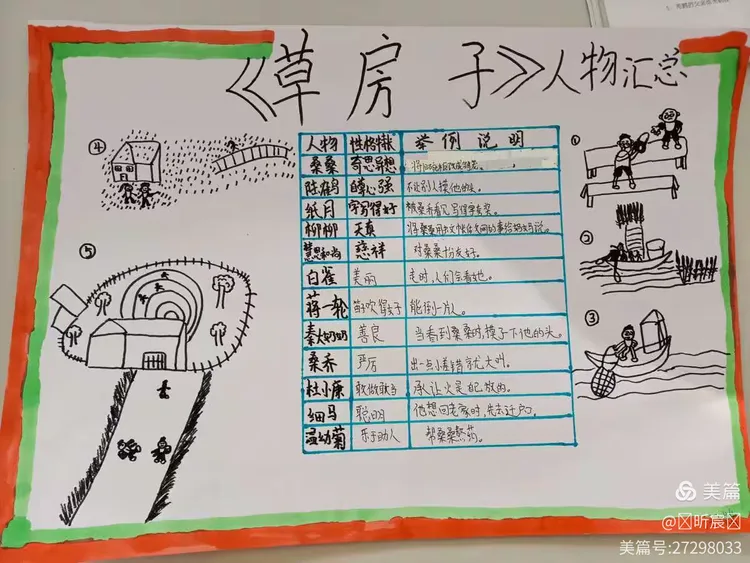 《草房子》人物汇总
人物 性格特征 举例说明
桑桑 奇思异想
陆鹤 自尊心强 不让别人摸他的头。
纸月 字写得好 被桑乔看见写得字夸奖。
柳柳 天真
慧思和尚 慈祥 对桑桑十分友好。
白雀 美丽 走时,人们会看她。
蒋一轮 能倒一片人。
秦大奶奶 善良 当看到桑桑时,摸了下他的头。
桑乔 严厉 出一点小差错就大叫。
杜小康 敢做敢当 承认火是自己放的。
细马 聪明 他想回老家时,先去迁户口。
温幼菊 乐于助人 帮桑桑熬药。
①
②
③
④
⑤
美篇
@昕宸
美篇号:27298033